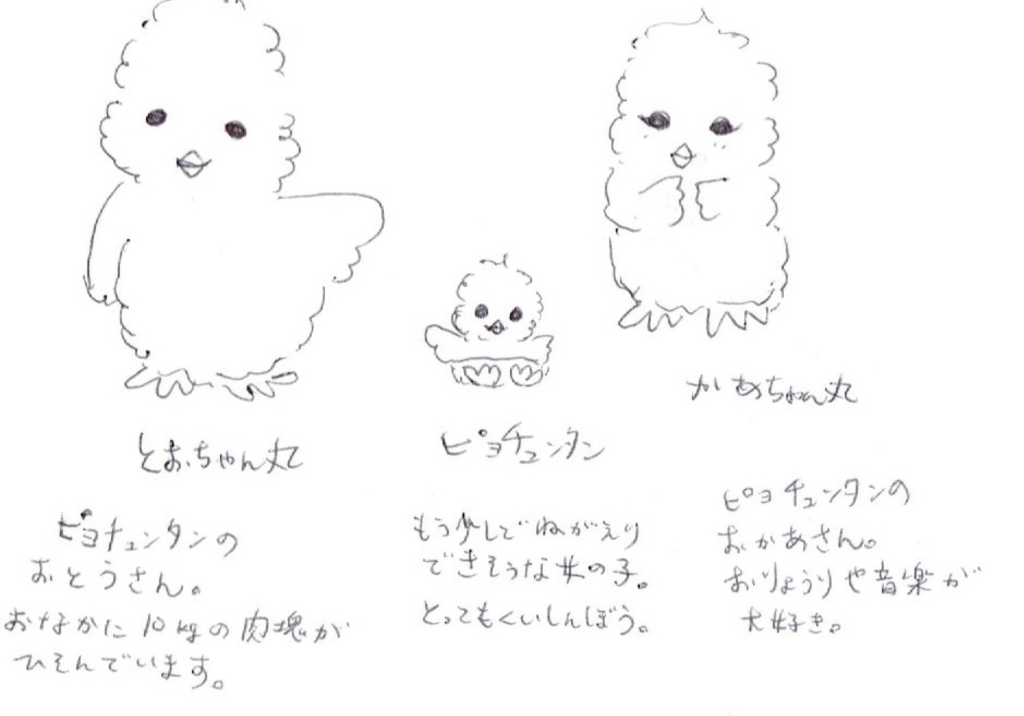 とおちゃん丸
ピヨチュンタンの
おとうさん。
おなかに10kgの肉塊が
ひそんでいます。
ピヨチュンタン
もう少しでねがえり
できそうな女の子。
とってもくいしんぼう。
かあちゃん丸
ピヨチュンタンの
おかあさん。
おりょうりや音楽が
大好き。